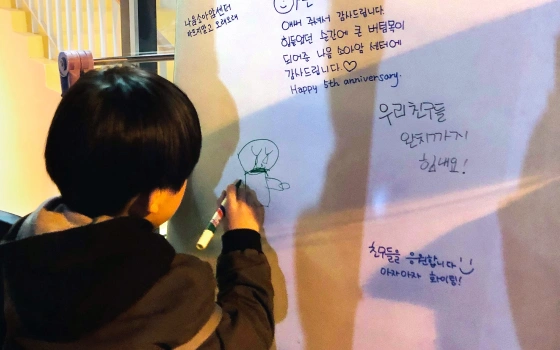 나음소아암센터
아프지말고 오래오래
예배 주셔서 감사드립니다.
힘들었던 순간에 큰 버팀목이
되어준 나음 소아암 센터에
감사드립니다.♡
Happy 5th anniversary.
우리친구들
완치까지
힘내요!
친구들을 응원합니다
아자아자 화이팅!